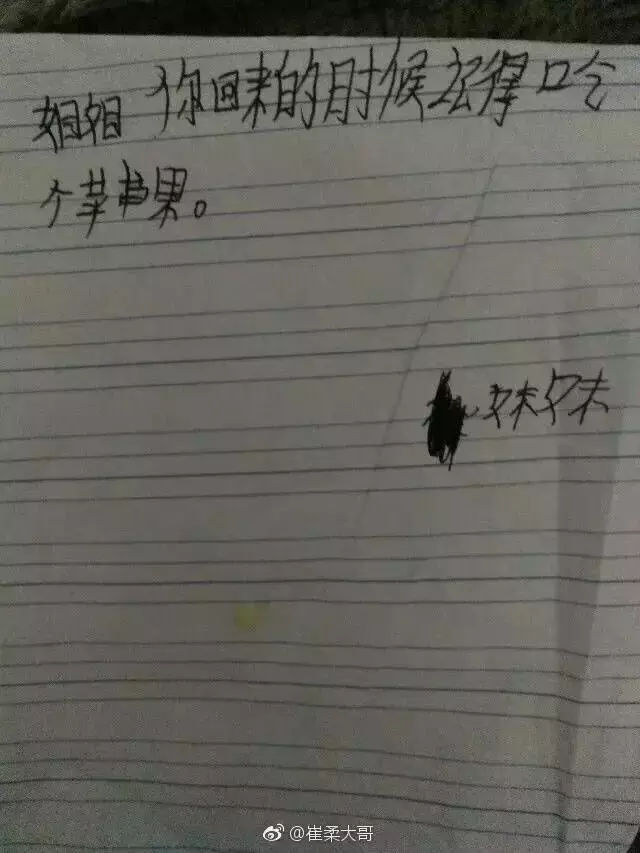 姐姐 你回来的时候记得口合
个苹书果。
妹妹
@崔柔大哥